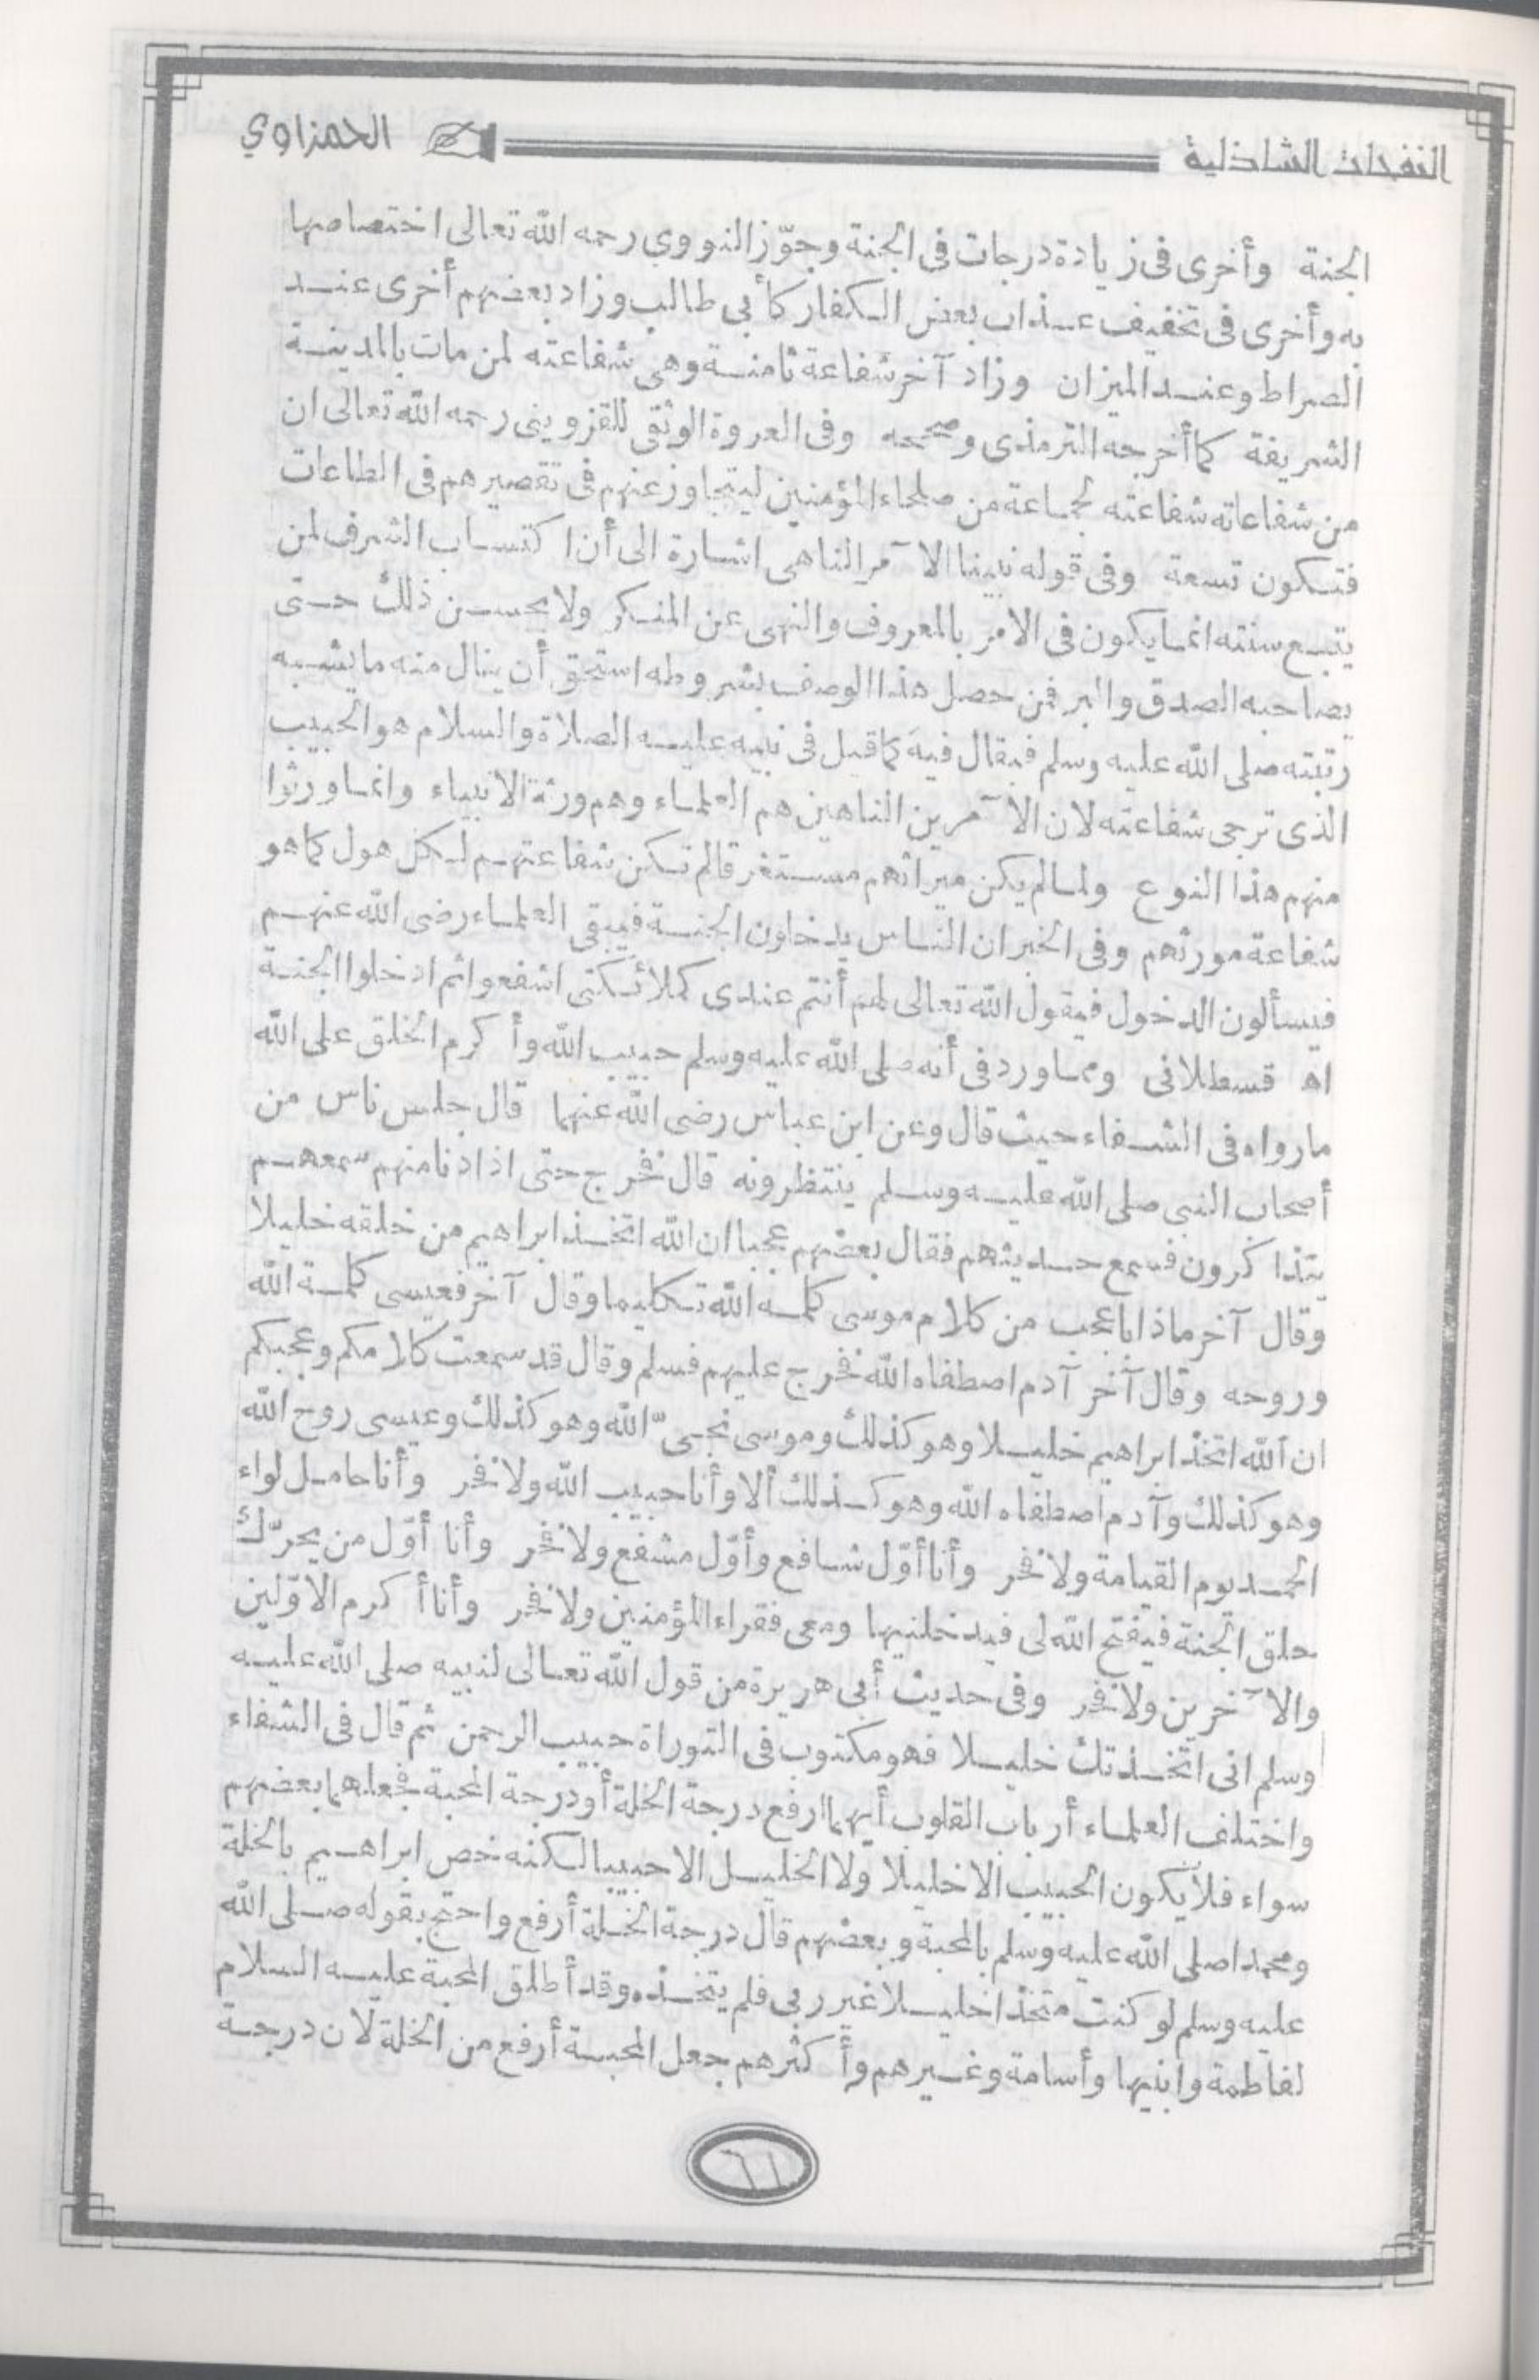 النفحات الشاذلية
الحمزاوي
الجنة وأخرى فى زيادة درجات فى الجنة وجوّز النووي رحمه الله تعالى اختصاصها
به وأخرى فى تخفيف عذاب بعض الكفار كأبى طالب وزاد بعضهم أخرى عند
الصراط وعند الميزان وزاد آخر شفاعة ثامنة وهى شفاعته لمن مات بالمدينة
الشريفة كما أخرجه الترمذى وصححه وفى العروة الوثقى للقزوينى رحمه الله تعالى ان
من شفاعاته شفاعته لجماعة من صلحاء المؤمنين ليتجاوز عنهم فى تقصيرهم فى الطاعات
فتكون تسعة وفى قوله نبينا الآمر الناهى اشارة الى أن اكتساب الشرف لمن
يتبع سنته انما يكون فى الامر بالمعروف والنهى عن المنكر ولا يحسن ذلك حتى
يصاحبه الصدق والبر فمن حصل هذا الوصف بشروطه استحق أن ينال منه ما يشبه
رتبته صلى الله عليه وسلم فيقال فيه كما قيل فى نبيه عليه الصلاة والسلام هو الحبيب
الذى ترجى شفاعته لان الآمرين الناهين هم العلماء وهم ورثة الانبياء وانما ورثوا
منهم هذا النوع ولما لم يكن ميراثهم مستغرقا لم تكن شفاعتهم لكل هول كما هو
شفاعة مورثهم وفى الخبر ان الناس يدخلون الجنة فيبقى العلماء رضى الله عنهم
فيسألون الدخول فيقول الله تعالى لهم أنتم عندى كملائكتى اشفعوا ثم ادخلوا الجنة
اه قسطلانى ومما ورد فى أنه صلى الله عليه وسلم حبيب الله وأكرم الخلق على الله
ما رواه فى الشفاء حيث قال وعن ابن عباس رضى الله عنهما قال جلس ناس من
أصحاب النبى صلى الله عليه وسلم ينتظرونه قال فخرج حتى اذا دنا منهم سمعهم
يتذاكرون فسمع حديثهم فقال بعضهم عجبا ان الله اتخذ ابراهيم من خلقه خليلا
وقال آخر ماذا باعجب من كلام موسى كلمه الله تكليما وقال آخر فعيسى كلمة الله
وروحه وقال آخر آدم اصطفاه الله فخرج عليهم فسلم وقال قد سمعت كلامكم وعجبكم
ان الله اتخذ ابراهيم خليلا وهو كذلك وموسى نجىّ الله وهو كذلك وعيسى روح الله
وهو كذلك وآدم اصطفاه الله وهو كذلك ألا وأنا حبيب الله ولا فخر وأنا حامل لواء
الحمد يوم القيامة ولا فخر وأنا أوّل شافع وأوّل مشفع ولا فخر وأنا أوّل من يحرّك
حلق الجنة فيفتح الله لى فيدخلنيها ومعى فقراء المؤمنين ولا فخر وأنا أكرم الاوّلين
والآخرين ولا فخر وفى حديث أبى هريرة من قول الله تعالى لنبيه صلى الله عليه
وسلم انى اتخذتك خليلا فهو مكتوب فى التوراة حبيب الرحمن ثم قال فى الشفاء
واختلف العلماء أرباب القلوب أيهما ارفع درجة الخلة أو درجة المحبة فجعلهما بعضهم
سواء فلا يكون الحبيب الا خليلا ولا الخليل الا حبيبا لكنه خص ابراهيم بالخلة
ومحمدا صلى الله عليه وسلم بالمحبة وبعضهم قال درجة الخلة أرفع واحتج بقوله صلى الله
عليه وسلم لو كنت متخذا خليلا غير ربى فلم يتخذه وقد أطلق المحبة عليه السلام
لفاطمة وابنيها وأسامة وغيرهم وأكثرهم جعل المحبة أرفع من الخلة لان درجة
٦١